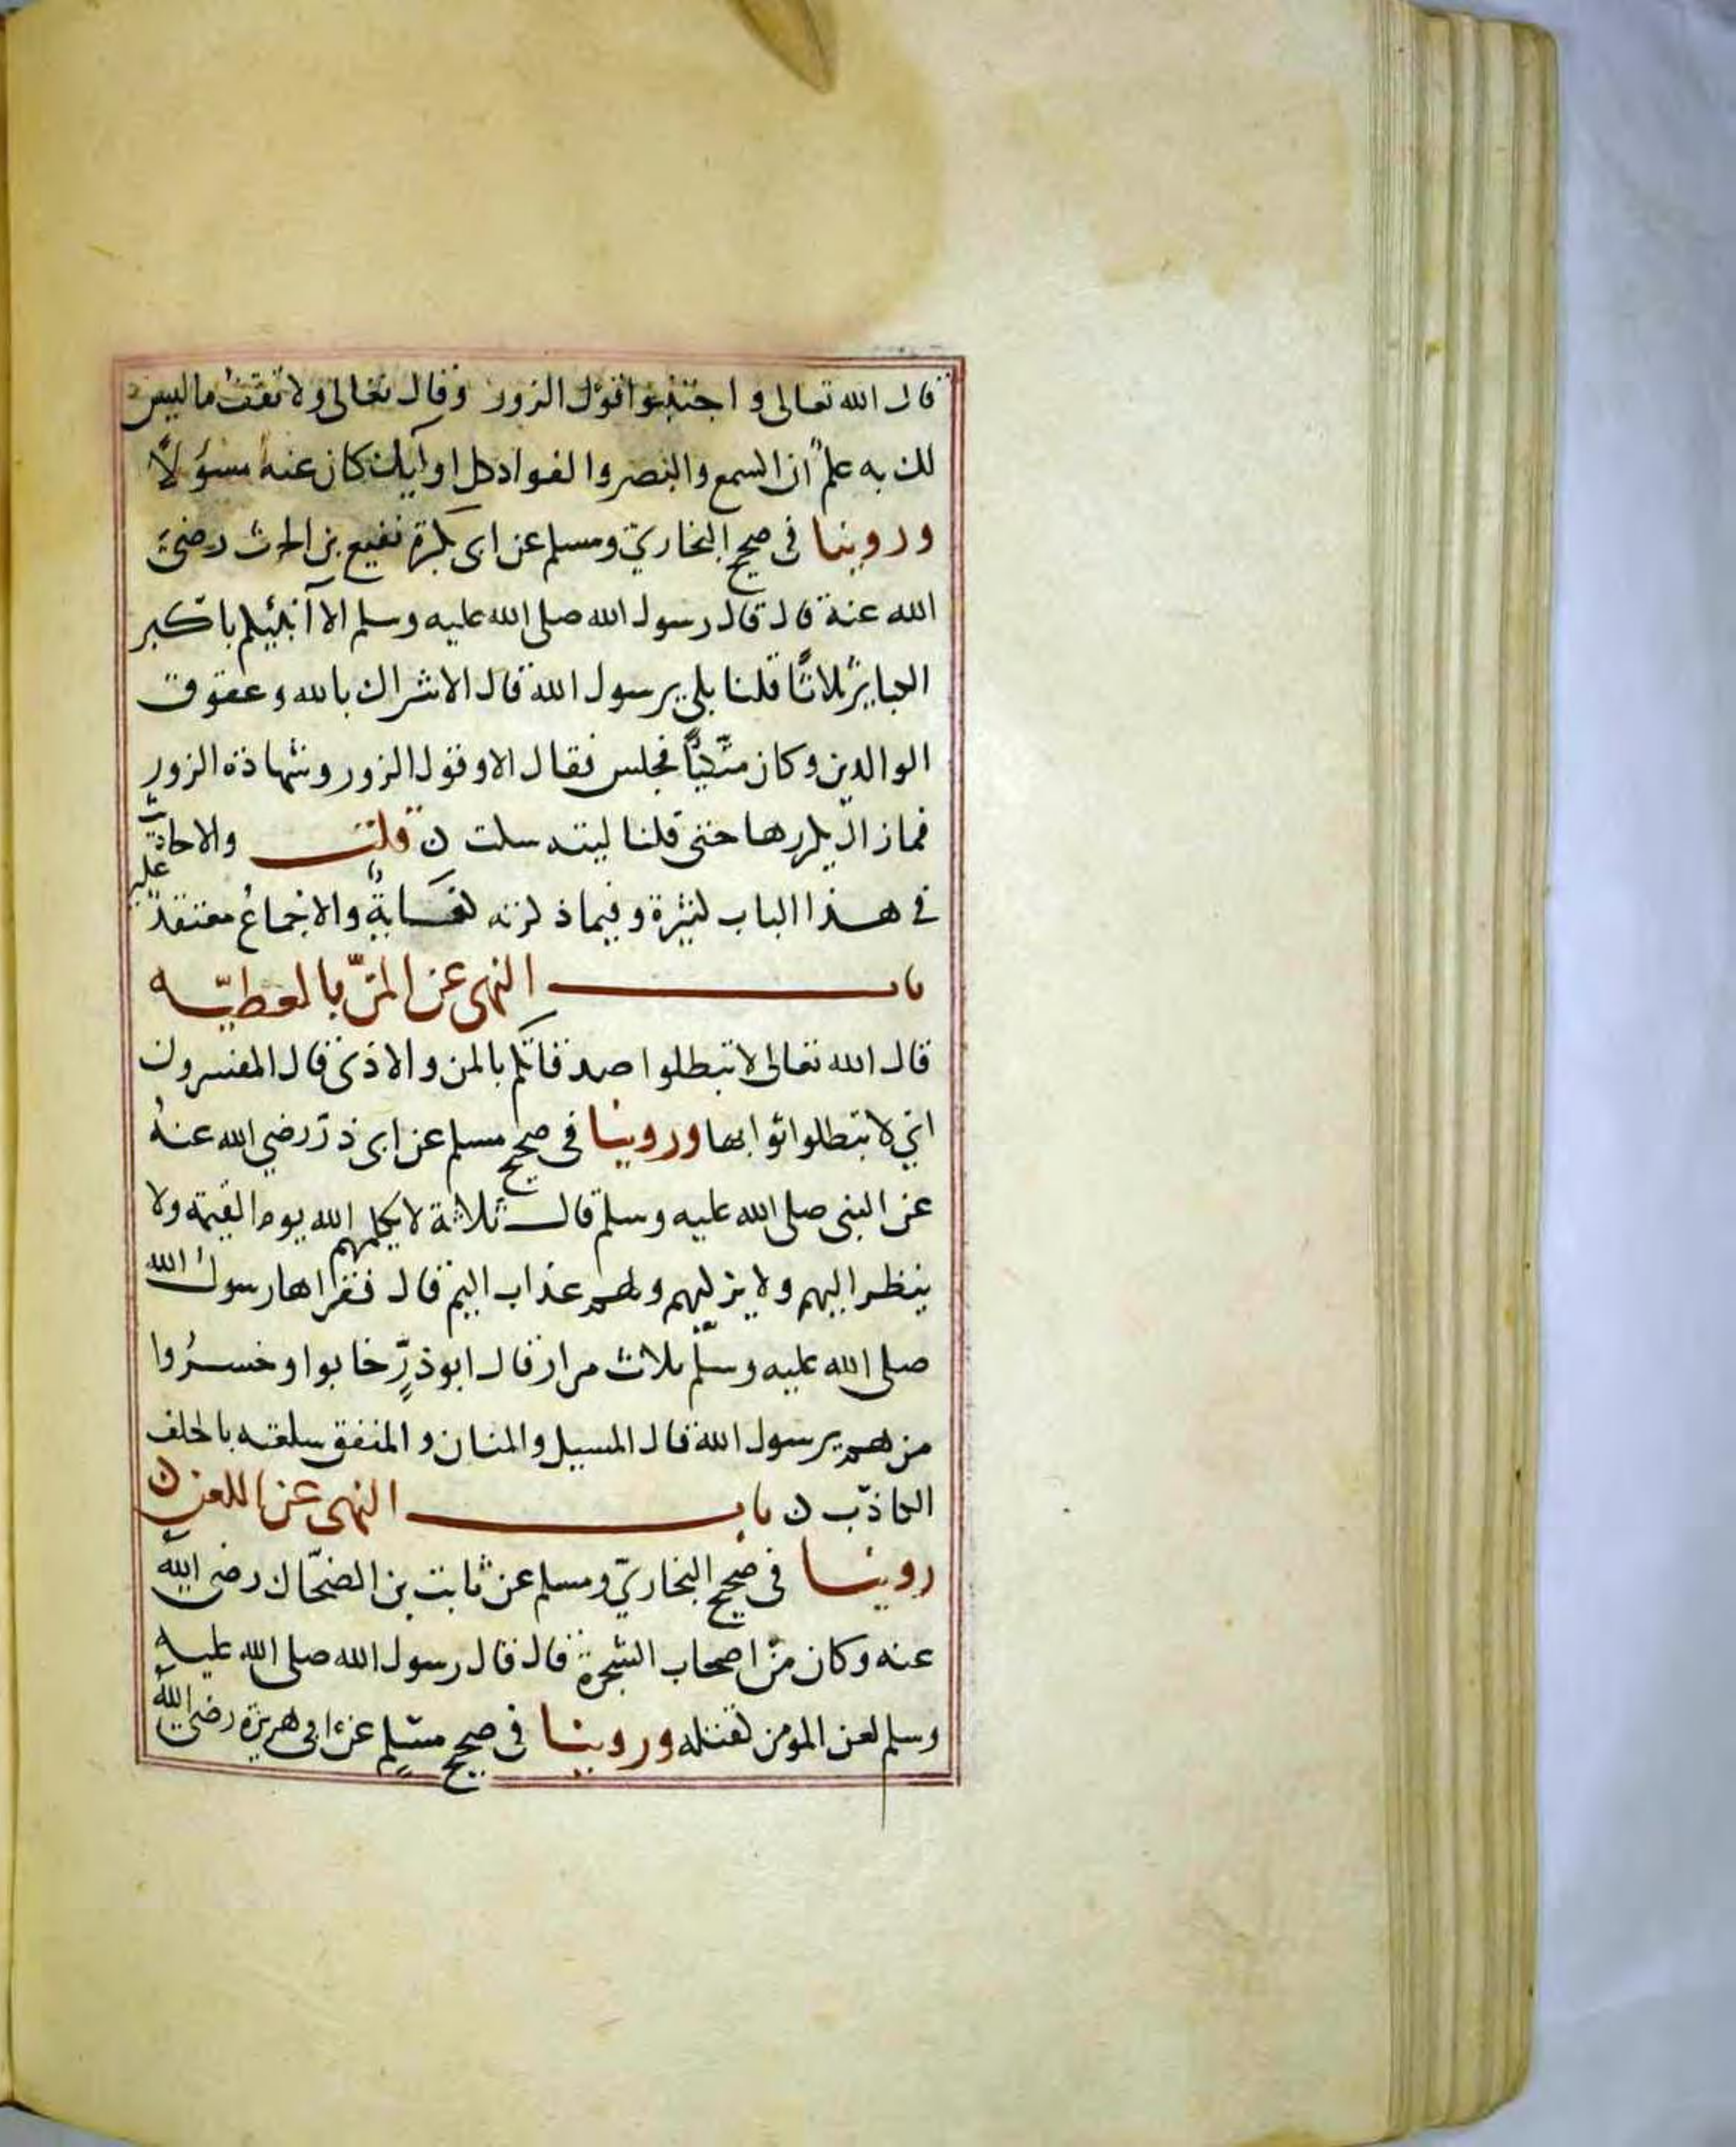 قال الله تعالى و اجتنبوا قول الزور وقال تعالى ولا تقف ما ليس
لك به علم ان السمع والبصر والفواد كل اوليك كان عنه مسؤلاً
وروينا في صحيح البخاري ومسلم عن ابي بكرة نفيع بن الحرث رضي
الله عنه قال قال رسول الله صلى الله عليه وسلم الا انبئكم باكبر
الكباير ثلاثًا قلنا بلى يرسول الله قال الاشراك بالله وعقوق
الوالدين وكان متكيًا فجلس فقال الا وقول الزور وشهادة الزور
فما زال يكررها حتى قلنا ليته سكت ن قلت والاحاديث
في هذا الباب كثيرة وفيما ذكرته كفايةٌ والاجماع منعقد عليه
باب النهي عن المنّ بالعطيّه
قال الله تعالى لا تبطلوا صدقاتكم بالمن والاذى قال المفسرون
اي لا تبطلوا ثوابها وروينا في صحيح مسلم عن ابي ذر رضي الله عنه
عن النبي صلى الله عليه وسلم قال ثلاثة لا يكلمهم الله يوم القيمة ولا
ينظر اليهم ولا يزكيهم ولهم عذاب اليم قال فقراها رسول الله
صلى الله عليه وسلّم ثلاث مرار قال ابو ذرٍّ خابوا وخسرُوا
من هم يرسول الله قال المسبل والمنان والمنفق سلعته بالحلف
الكاذب ن باب النهي عن اللعن ن
روينا في صحيح البخاريّ ومسلم عن ثابت بن الضحّاك رضي الله
عنه وكان من اصحاب الشجرة قال قال رسول الله صلى الله عليه
وسلم لعن المومن كقتله وروينا في صحيح مسلم عن ابي هريرة رضي الله